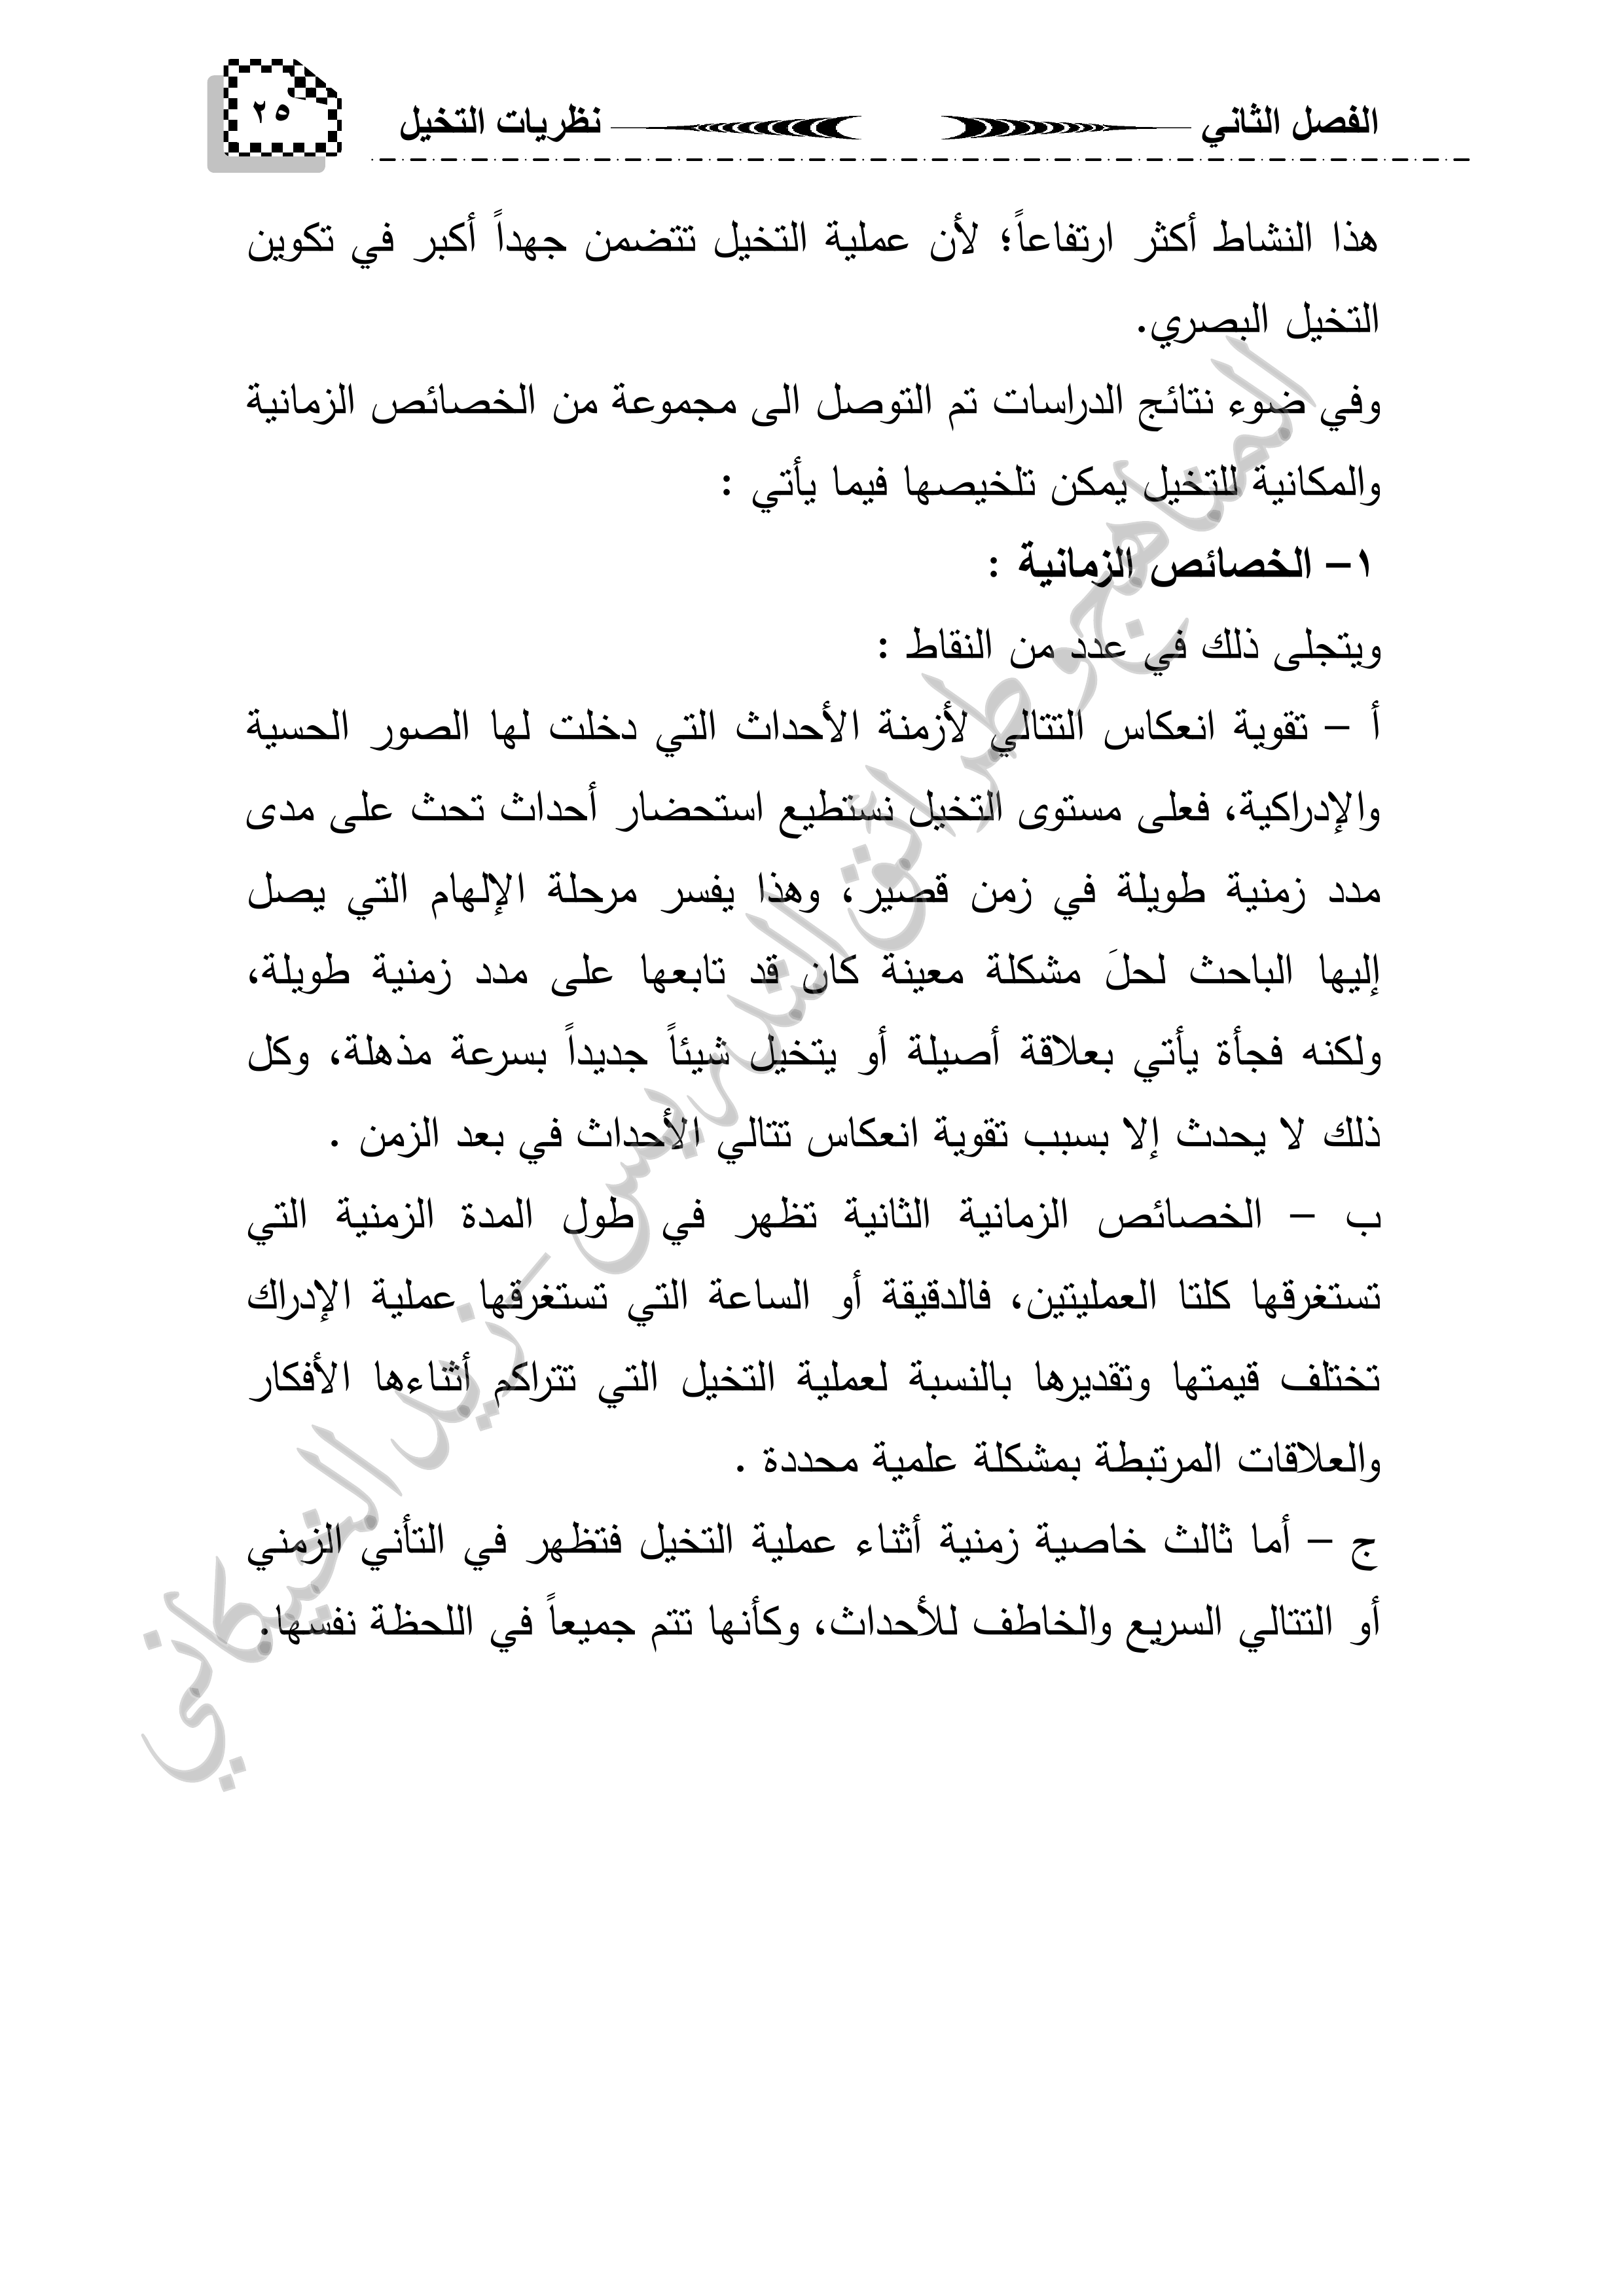 الفصل الثاني نظريات التخيل ٢٥
هذا النشاط أكثر ارتفاعاً؛ لأن عملية التخيل تتضمن جهداً أكبر في تكوين
التخيل البصري.
وفي ضوء نتائج الدراسات تم التوصل الى مجموعة من الخصائص الزمانية
والمكانية للتخيل يمكن تلخيصها فيما يأتي :
١– الخصائص الزمانية :
ويتجلى ذلك في عدد من النقاط :
أ – تقوية انعكاس التتالي لأزمنة الأحداث التي دخلت لها الصور الحسية
والإدراكية، فعلى مستوى التخيل نستطيع استحضار أحداث تحث على مدى
مدد زمنية طويلة في زمن قصير، وهذا يفسر مرحلة الإلهام التي يصل
إليها الباحث لحلَ مشكلة معينة كان قد تابعها على مدد زمنية طويلة،
ولكنه فجأة يأتي بعلاقة أصيلة أو يتخيل شيئاً جديداً بسرعة مذهلة، وكل
ذلك لا يحدث إلا بسبب تقوية انعكاس تتالي الأحداث في بعد الزمن .
ب – الخصائص الزمانية الثانية تظهر في طول المدة الزمنية التي
تستغرقها كلتا العمليتين، فالدقيقة أو الساعة التي تستغرقها عملية الإدراك
تختلف قيمتها وتقديرها بالنسبة لعملية التخيل التي تتراكم أثناءها الأفكار
والعلاقات المرتبطة بمشكلة علمية محددة .
ج – أما ثالث خاصية زمنية أثناء عملية التخيل فتظهر في التأني الزمني
أو التتالي السريع والخاطف للأحداث، وكأنها تتم جميعاً في اللحظة نفسها.
المناهج وطرائق التدريس – زيد الخيكاني